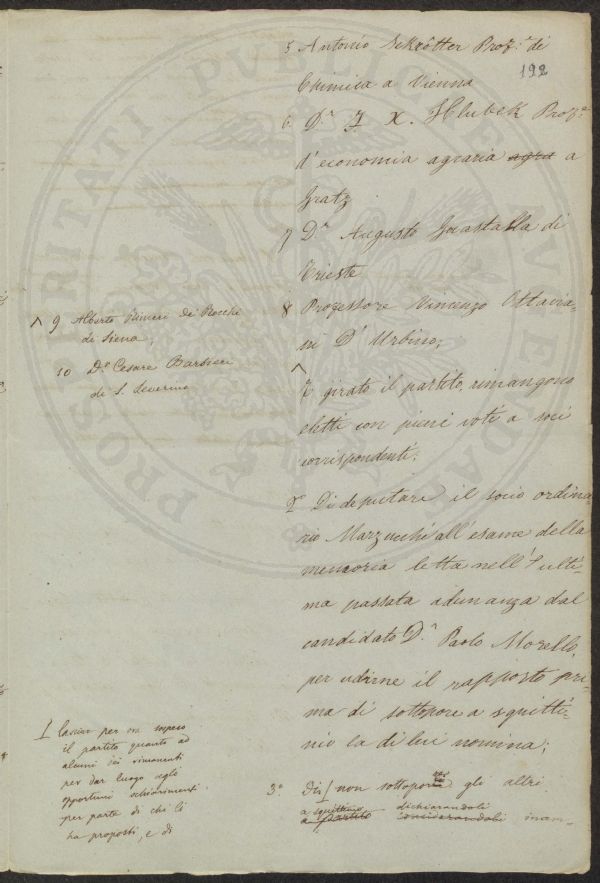 192
5 Antonio Sckrötter Prof.r di
Chimica a Vienna
6 D.r F X. Hlubek Prof.e
d'economia agraria agra a
Gratz
7 D.r Augusto Guastalla di
Trieste
8 Professore Vincenzo Ottavia=
ni D'Urbino;
^ 9 Alberto Rimieri de' Rocchi
di Siena;
10 D.r Cesare
di S. Severino
^
E girato il partito, rimangono
eletti con pieni voti a soci
corrispondenti;
2° Di deputare il socio ordina
rio Marzucchi all'esame della
memoria letta nell'ulti=
ma passata adunanza dal
candidato D.r Paolo Morello,
per udirne il rapporto pri
ma di sottoporre a squitti=
nio la di lui nomina;
3° Di non sottoporre gli altri
a squittino dichiarandoli
a partito considerandoli inam=
lasciar per ora sospeso
il partito quanto ad
alcuni dei rimanenti
per dar luogo agli
opportuni schiarimenti
per parte di chi li
ha proposti, e di
PROSPERITATI PUBLICAE AUGENDAE